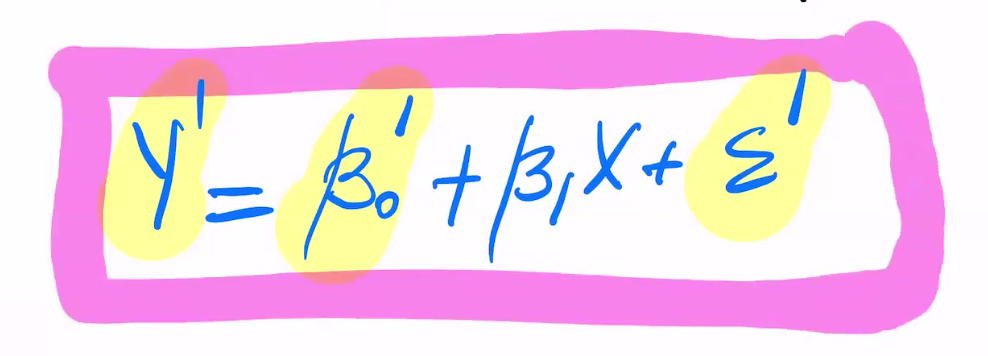 Y' = β₀' + β₁X + ε'